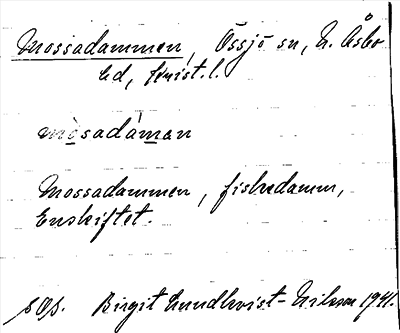 Mossadammen, Össjö sn, N. Åsbo
hd, Krist. l.
mòsadàman
Mossadammen, fiskedamm,
Enskiftet.
s Og. Birgit Lundkvist-Nilsson 1941.